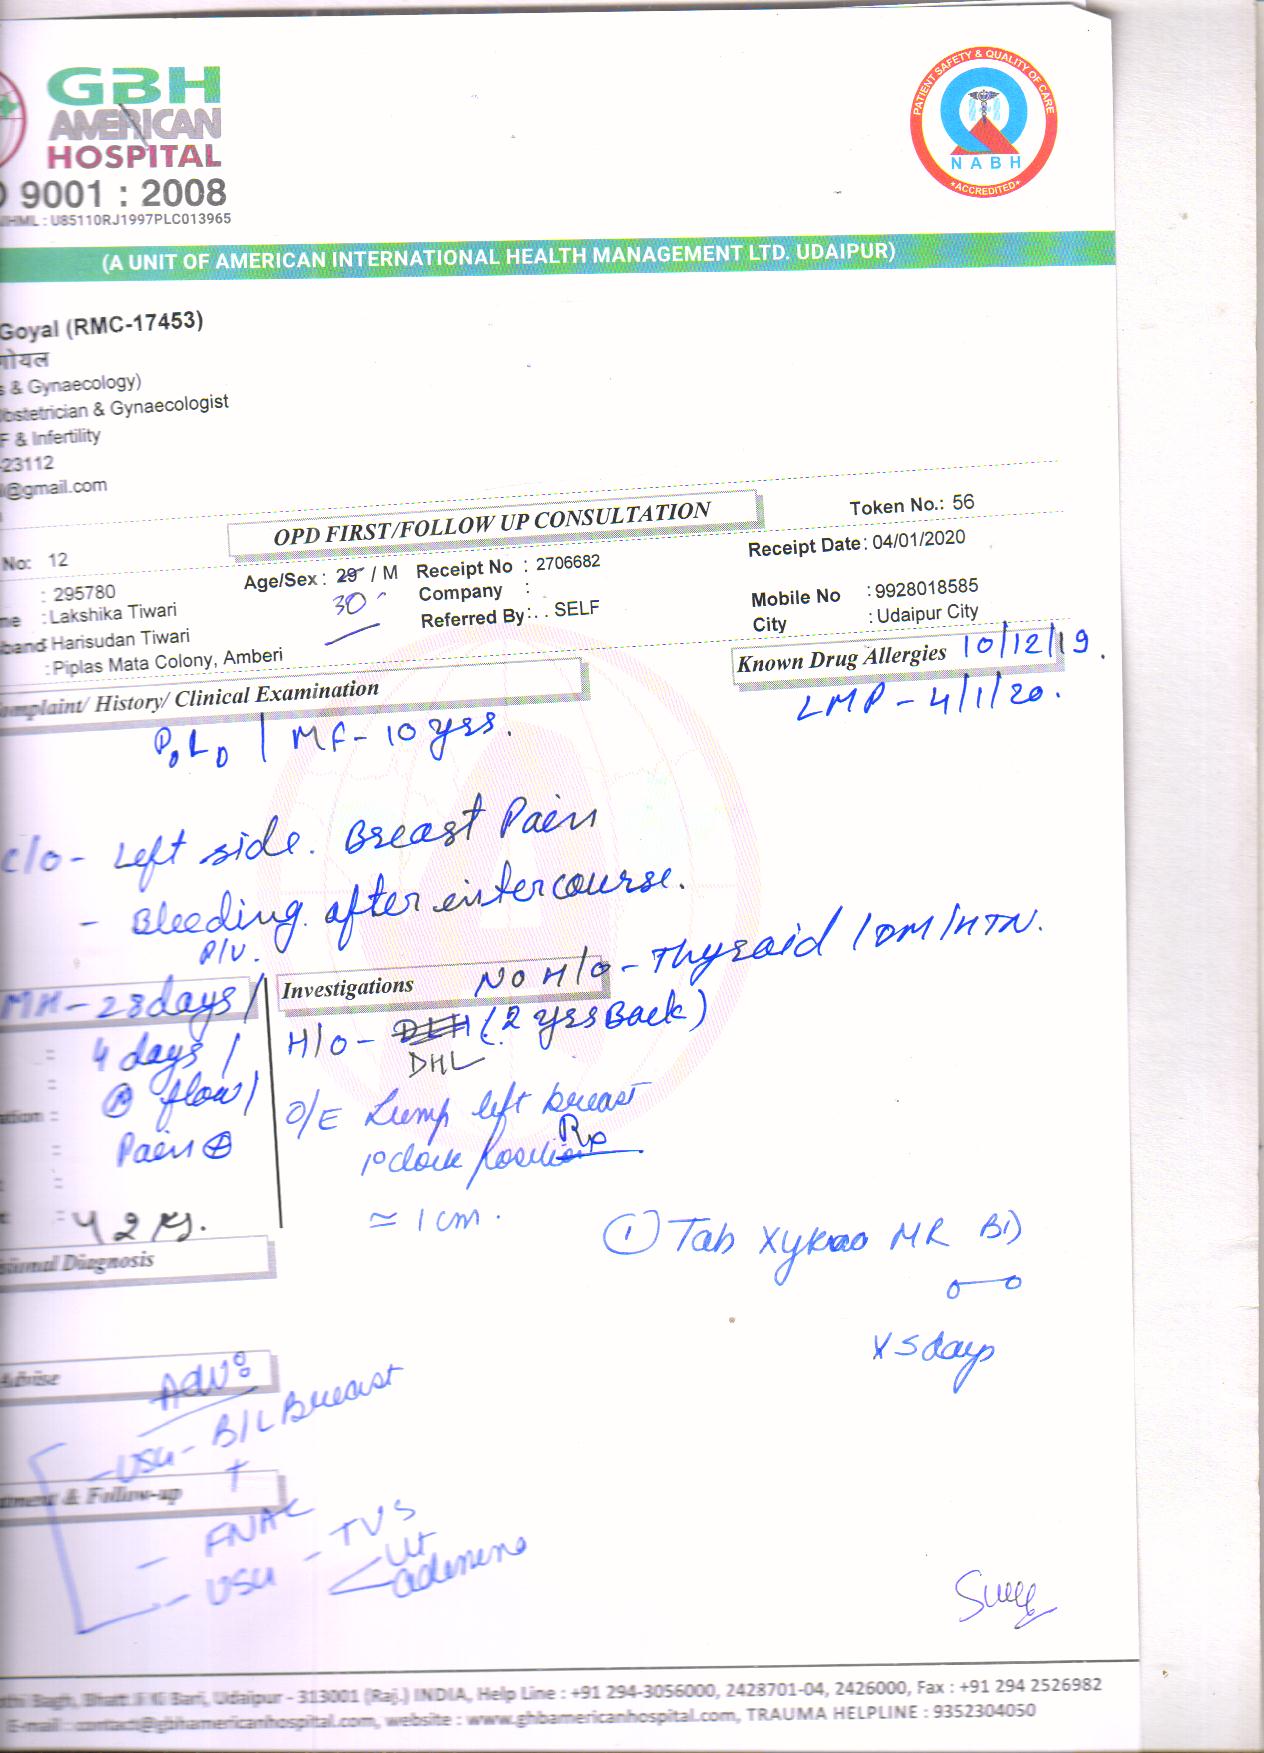 GBH
AMERICAN
HOSPITAL
9001 : 2008
: U85110RJ1997PLC013965
PATIENT SAFETY & QUALITY OF CARE
NABH
*ACCREDITED*
(A UNIT OF AMERICAN INTERNATIONAL HEALTH MANAGEMENT LTD. UDAIPUR)
Goyal (RMC-17453)
गोयल
& Gynaecology)
Obstetrician & Gynaecologist
F & Infertility
-23112
@gmail.com
OPD FIRST/FOLLOW UP CONSULTATION
Token No.: 56
No: 12
Age/Sex : 29 / M
Receipt No : 2706682
Receipt Date : 04/01/2020
30
: 295780
Company :
Mobile No : 9928018585
me : Lakshika Tiwari
Referred By : . . SELF
City : Udaipur City
band Harisudan Tiwari
: Piplas Mata Colony, Amberi
Known Drug Allergies 10/12/19.
omplaint/ History/ Clinical Examination
LMP - 4/1/20.
P0L0 / MF - 10 yrs.
C/o - Left side. Breast Pain
- Bleeding after intercourse.
P/V.
MH - 28 days /
Investigations NO H/O - Thyroid / DM / HTN.
4 days /
H/O - DLH (2 yrs Back)
DHL
flow /
O/E Lump left breast
Pain ⊕
1° clock position
Rp
≃ 1 cm.
42 kg.
① Tab MR BD
sional Diagnosis
x 5 days
Advise
Adv:
- USG - B/L Breast
+
tment & Follow-up
- FNAC
- USG - TVS
Ut
adenexa
Bagh, Bhatt Ji Ki Bari, Udaipur - 313001 (Raj.) INDIA, Help Line : +91 294-3056000, 2428701-04, 2426000, Fax : +91 294 2526982
E-mail : contact@gbhamericanhospital.com, website : www.ghbamericanhospital.com, TRAUMA HELPLINE : 9352304050